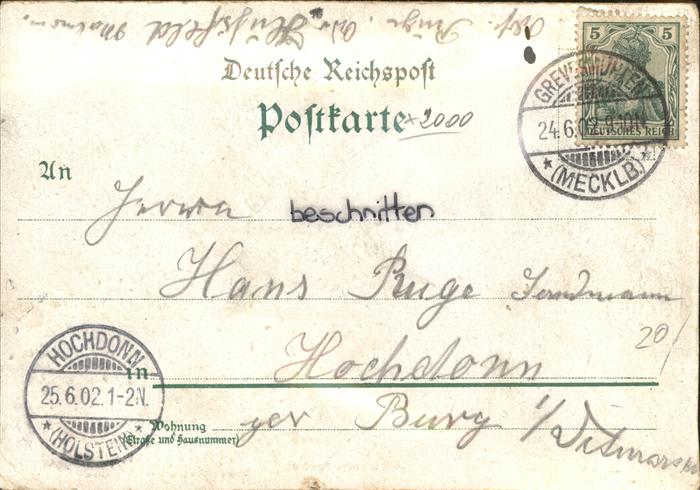 Deutsche Reichspost
Postkarte
x 2000
5 5
DEUTSCHES REICH
GREVESMÜHLEN
24.6.02 9-10N
* (MECKLB.) *
An
Herrn
beschnitten
Hans Ruge Landmann
20/
Hochdonn
in
per Burg i/Ditmarschen
Wohnung
(Straße und Hausnummer)
HOCHDONN
25.6.02.1-2N.
* (HOLSTEIN) *